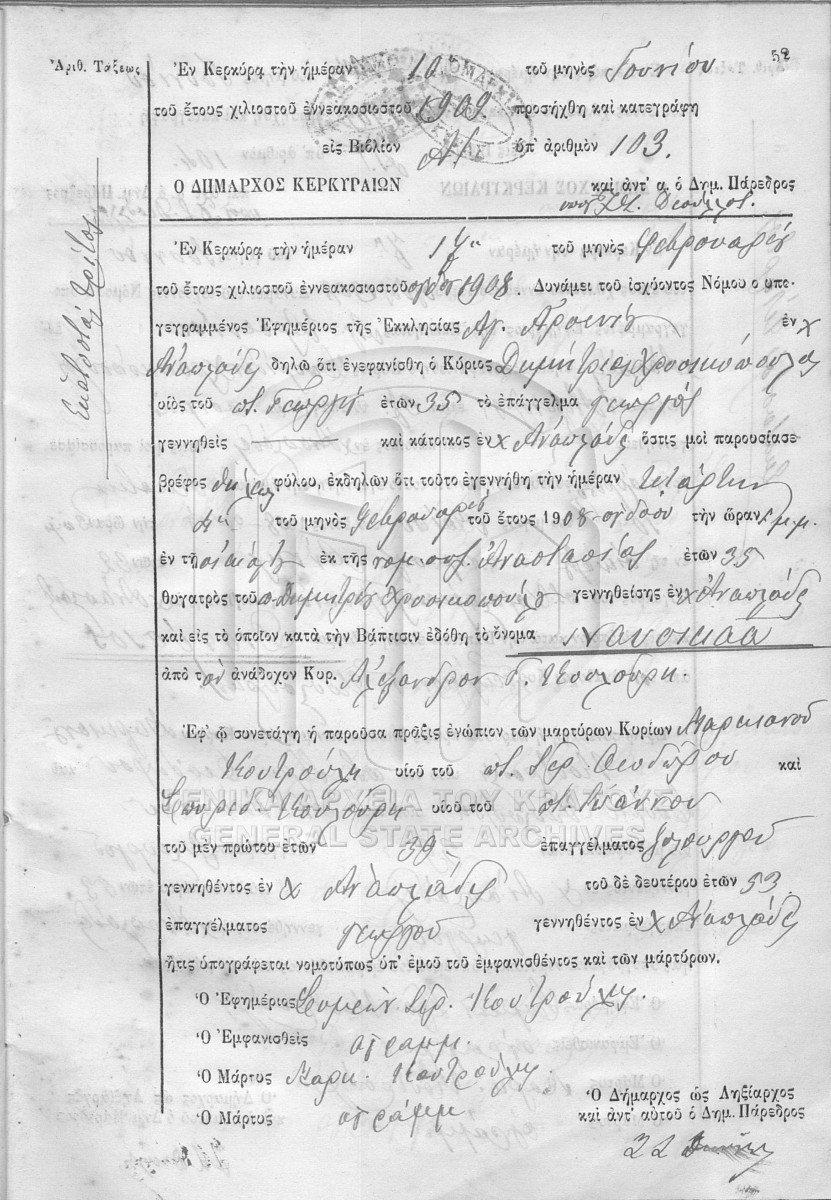 52
Ἀριθ. Τάξεως
Ἐν Κερκύρᾳ τὴν ἡμέραν 10 τοῦ μηνὸς Ἰουνίου
τοῦ ἔτους χιλιοστοῦ ἐννεακοσιοστοῦ 1909 προσήχθη καὶ κατεγράφη
εἰς Βιβλίον ὑπ' ἀριθμὸν 103.
Ο ΔΗΜΑΡΧΟΣ ΚΕΡΚΥΡΑΙΩΝ καὶ ἀντ' α. ὁ Δημ. Πάρεδρος
Ἑκατοστὸς τρίτος
Ἐν Κερκύρᾳ τὴν ἡμέραν 17 τοῦ μηνὸς Φεβρουαρίου
τοῦ ἔτους χιλιοστοῦ ἐννεακοσιοστοῦ ὀγδόου 1908. Δυνάμει τοῦ ἰσχύοντος Νόμου ο υπο-
γεγραμμένος Ἐφημέριος τῆς Ἐκκλησίας Αγ. ἐν χ
Ἀναπλάδες δηλῶ ὅτι ἐνεφανίσθη ὁ Κύριος Δημήτριος Χρυσικόπουλος
υἱὸς τοῦ π. Γεωργίου ἐτῶν 35 τὸ ἐπάγγελμα γεωργὸς
γεννηθεὶς καὶ κάτοικος ἐν χ Ἀναπλάδες ὅστις μοὶ παρουσίασε
βρέφος θήλεος φύλου, ἐκδηλῶν ὅτι τοῦτο ἐγεννήθη τὴν ἡμέραν τετάρτην
τοῦ μηνὸς Φεβρουαρίου τοῦ ἔτους 1908 ὀγδόου τὴν ὥραν μ.μ.
ἐν τῇ οἰκίᾳ ἐκ τῆς νομ. συζ. Ἀναστασίας ἐτῶν 35
θυγατρὸς τοῦ π. Δημητρίου Χρυσικοπούλου γεννηθείσης ἐν χ Ἀναπλάδες
καὶ εἰς τὸ ὁποῖον κατὰ τὴν Βάπτισιν ἐδόθη τὸ ὄνομα Ναυσικᾶα
ἀπὸ τὸν ἀνάδοχον Κυρ. Ἀλέξανδρον Κουλούρη.
Ἐφ' ᾧ συνετάγη ἡ παροῦσα πρᾶξις ἐνώπιον τῶν μαρτύρων Κυρίων Μαρκιανοῦ
Κουτρούλη υἱοῦ τοῦ π. Ἱερ. Θεοδώρου καὶ
Σπυρίδ. Κουλούρη υἱοῦ τοῦ π. Ἰωάννου
ΓΕΝΙΚΑ ΑΡΧΕΙΑ ΤΟΥ ΚΡΑΤΟΥΣ
GENERAL STATE ARCHIVES
τοῦ μὲν πρώτου ἐτῶν 39 ἐπαγγέλματος ξυλουργοῦ
γεννηθέντος ἐν χ Ἀναπλάδες τοῦ δὲ δευτέρου ἐτῶν 53.
ἐπαγγέλματος γεωργοῦ γεννηθέντος ἐν χ Ἀναπλάδες
ἥτις ὑπογράφεται νομοτύπως ὑπ' ἐμοῦ τοῦ ἐμφανισθέντος καὶ τῶν μαρτύρων.
Ὁ Ἐφημέριος Συμεὼν Ἱερ. Κουτρούλης.
Ὁ Ἐμφανισθεὶς ἀγράμμ.
Ὁ Μάρτυς Μαρκ. Κουτρούλης.
Ὁ Μάρτυς ἀγράμμ
Ὁ Δήμαρχος ὡς Ληξίαρχος
καὶ ἀντ' αὐτοῦ ὁ Δημ. Πάρεδρος